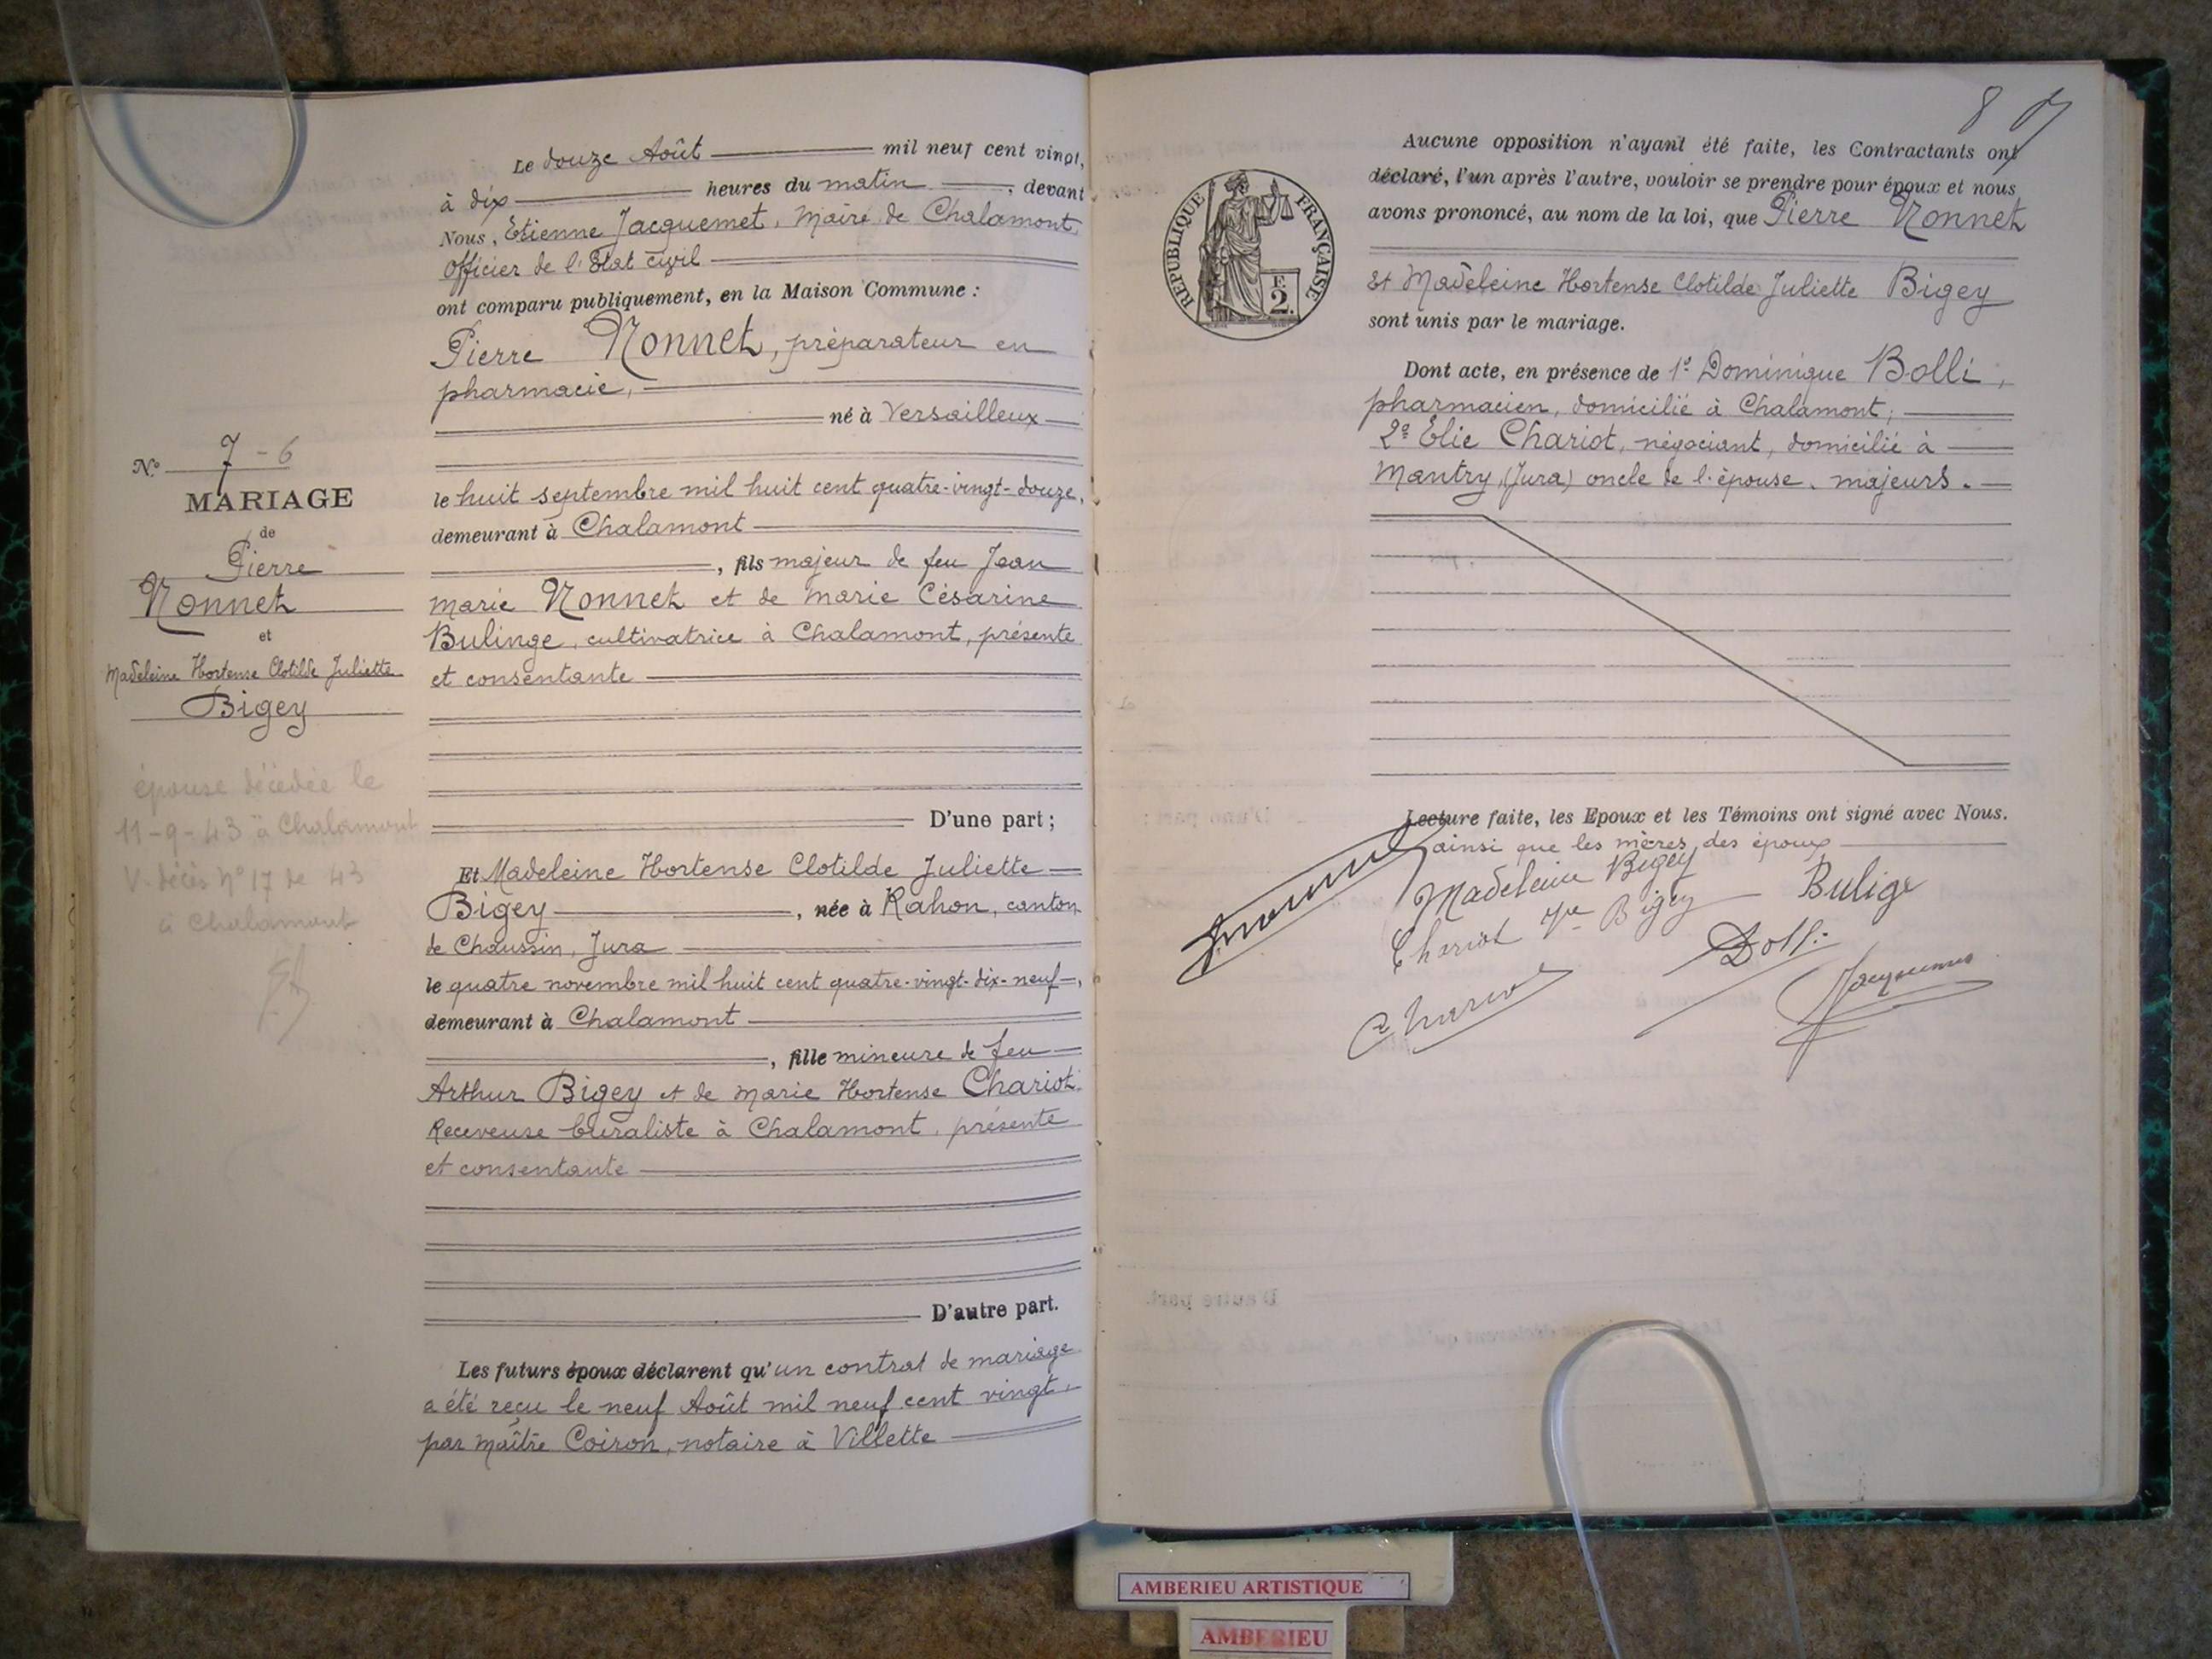 N.° 7 - 6
MARIAGE
de
Pierre
Nonnet
et
Madeleine Hortense Clotilde Juliette
Bigey
épouse décédée le
11-9-43 à Chalamont
V. décès n° 17 de 43
à Chalamont
Le douze Août mil neuf cent vingt,
à dix heures du matin, devant
Nous, Etienne Jacquemet, Maire de Chalamont,
Officier de l'Etat civil
ont comparu publiquement, en la Maison Commune :
Pierre Nonnet, préparateur en
pharmacie,
né à Versailleux
le huit septembre mil huit cent quatre-vingt-douze,
demeurant à Chalamont
, fils majeur de feu Jean
Marie Nonnet et de Marie Césarine
Bulinge, cultivatrice à Chalamont, présente
et consentante
D'une part ;
Et Madeleine Hortense Clotilde Juliette
Bigey, née à Rahon, canton
de Chaussin, Jura
le quatre novembre mil huit cent quatre-vingt-dix-neuf,
demeurant à Chalamont
, fille mineure de feu
Arthur Bigey et de Marie Hortense Chariot.
Receveuse buraliste à Chalamont, présente
et consentante
D'autre part.
Les futurs époux déclarent qu'un contrat de mariage
a été reçu le neuf Août mil neuf cent vingt,
par Maître Coiron, notaire à Villette
8
REPUBLIQUE FRANÇAISE
F.
2.
Aucune opposition n'ayant été faite, les Contractants ont
déclaré, l'un après l'autre, vouloir se prendre pour époux et nous
avons prononcé, au nom de la loi, que Pierre Nonnet
et Madeleine Hortense Clotilde Juliette Bigey
sont unis par le mariage.
Dont acte, en présence de 1° Dominique Bolli,
pharmacien, domicilié à Chalamont;
2° Elie Chariot, négociant, domicilié à
Mantry, (Jura) oncle de l'épouse, majeurs.
Lecture faite, les Epoux et les Témoins ont signé avec Nous.
ainsi que les mères des époux
Madeleine Bigey
Bulige
Chariot Vve Bigey
Bolli
Chariot
Jacquemet
AMBERIEU ARTISTIQUE
AMBERIEU